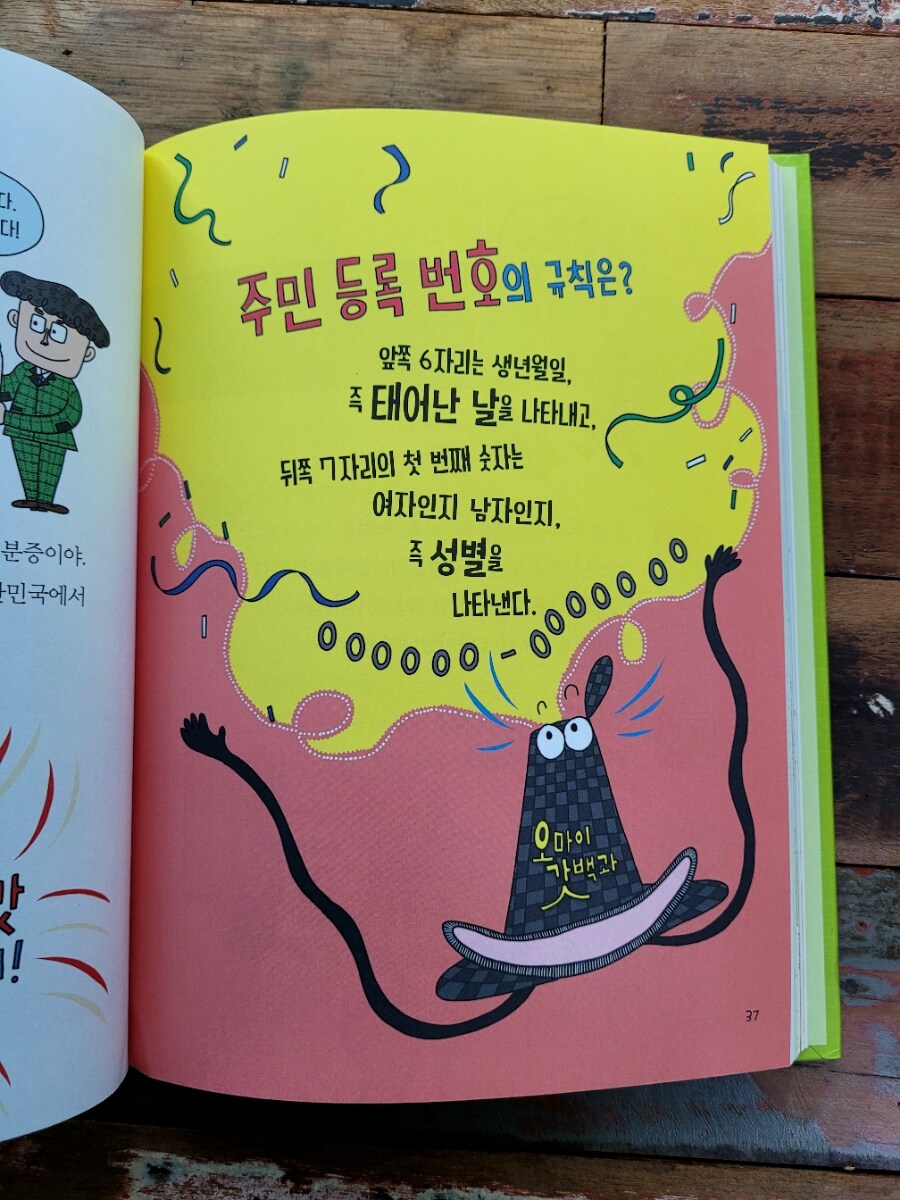 다.
다!
분증이야.
민국에서
맛
!
주민 등록 번호의 규칙은?
앞쪽 6자리는 생년월일,
즉 태어난 날을 나타내고,
뒤쪽 7자리의 첫 번째 숫자는
여자인지 남자인지,
즉 성별을
나타낸다.
000000-0000000
오마이
갓백과
37